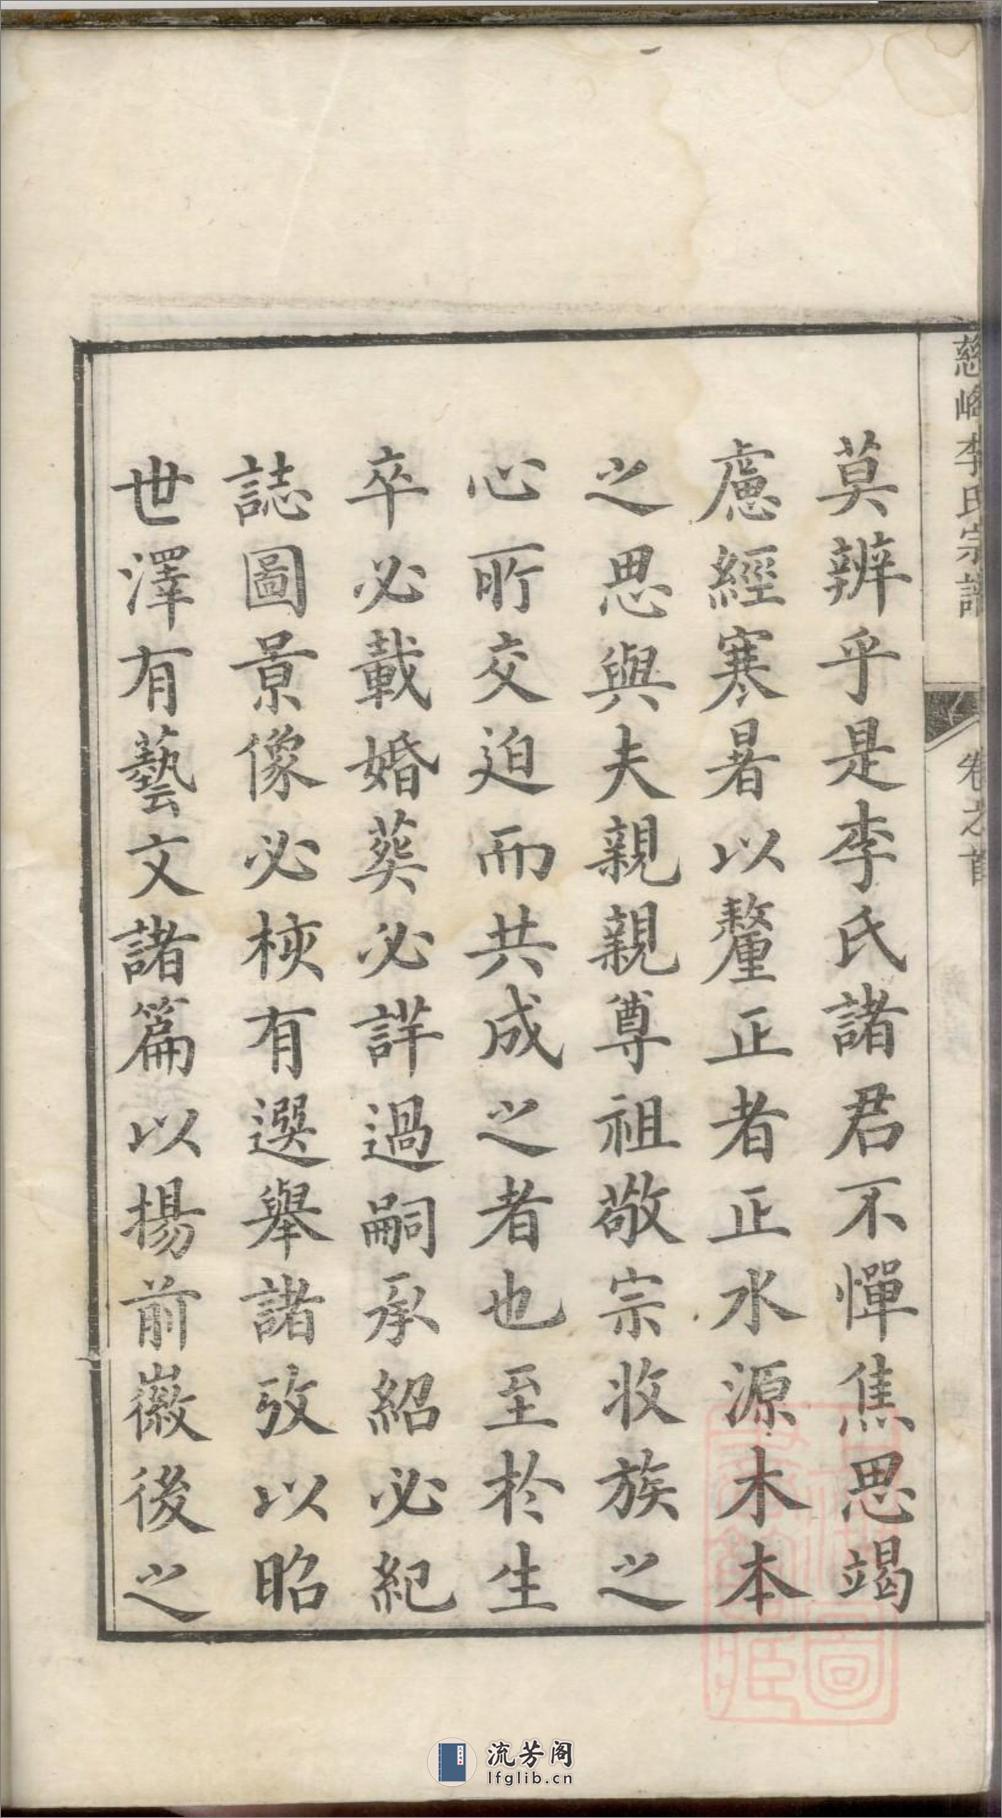 慈峰李氏宗譜
卷之首
莫辨乎是李氏諸君不憚焦思竭
慮經寒暑以釐正者正水源木本
之思與夫親親尊祖敬宗收族之
心所交迫而共成之者也至於生
卒必載婚葬必詳過嗣承紹必紀
誌圖景像必核有選舉諸攷以昭
世澤有藝文諸篇以揚前徽後之
流芳阁
lfglib.cn